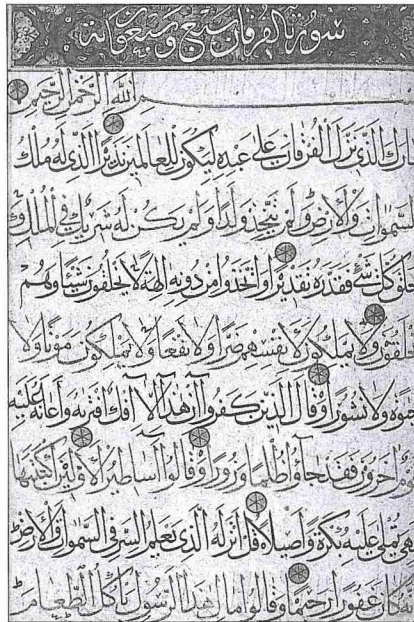 سورة الفرقان سبع وسبعون اية
بسم الله الرحمن الرحيم
تبارك الذي نزل الفرقان على عبده ليكون للعالمين نذيرا الذي له ملك
السموات والارض ولم يتخذ ولدا ولم يكن له شريك في الملك و
خلق كل شئ فقدره تقديرا واتخذوا من دونه الهة لا يخلقون شيئا وهم
يخلقون ولا يملكون لانفسهم ضرا ولا نفعا ولا يملكون موتا ولا
حيوة ولا نشورا وقال الذين كفروا ان هذا الا افك افتريه واعانه عليه
قوم اخرون فقد جاؤ ظلما وزورا وقالوا اساطير الاولين اكتتبها
فهي تملى عليه بكرة واصيلا قل انزله الذي يعلم السر في السموات والارض
انه كان غفورا رحيما وقالوا مال هذا الرسول ياكل الطعام